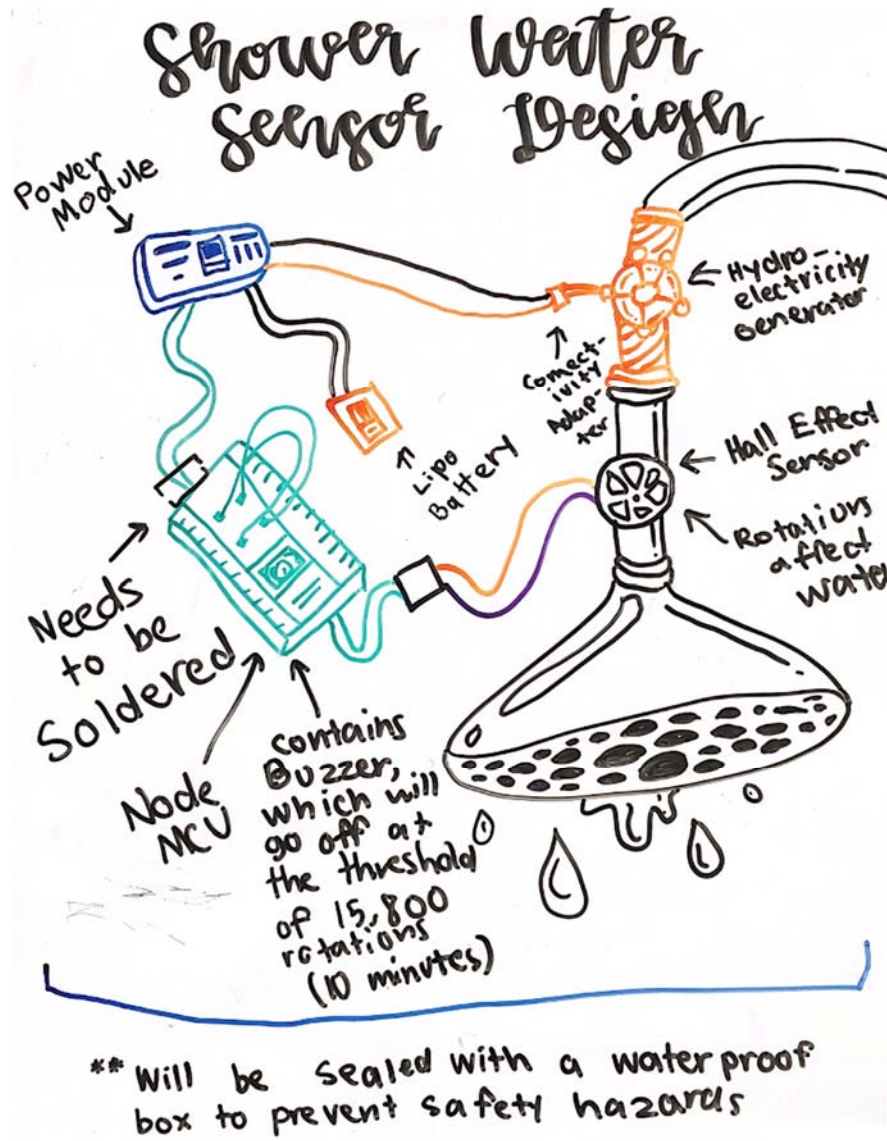 Shower Water
Sensor Design
Power
Module
Hydro-
electricity
Generator
Connect-
ivity
Adap-
ter
Lipo
Battery
Hall Effect
Sensor
Rotations
affect
water
Needs
to be
Soldered
Node
MCU
contains
Buzzer,
which will
go off at
the threshold
of 15,800
rotations
(10 minutes)
** Will be sealed with a waterproof
box to prevent safety hazards